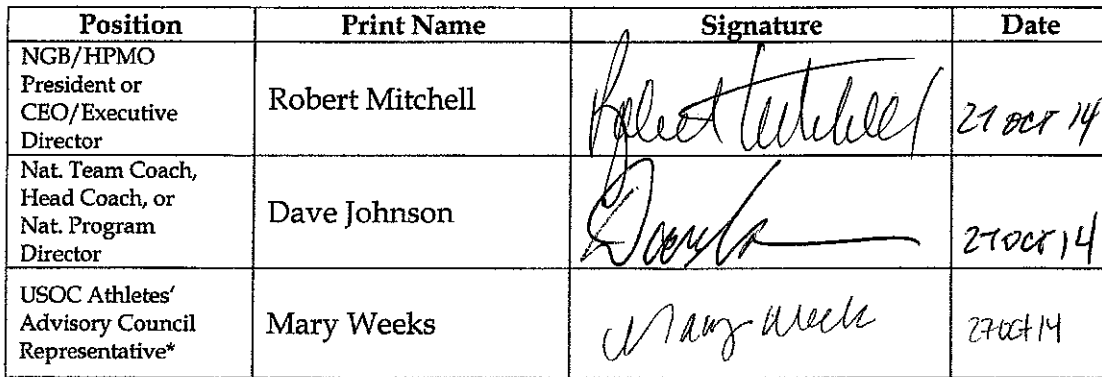 Position Print Name Signature Date
NGB/HPMO
President or
CEO/Executive
Director
Robert Mitchell
Robert Mitchell
27 OCT 14
Nat. Team Coach,
Head Coach, or
Nat. Program
Director
Dave Johnson
27 OCT 14
USOC Athletes'
Advisory Council
Representative*
Mary Weeks
Mary Weeks
27 Oct 14